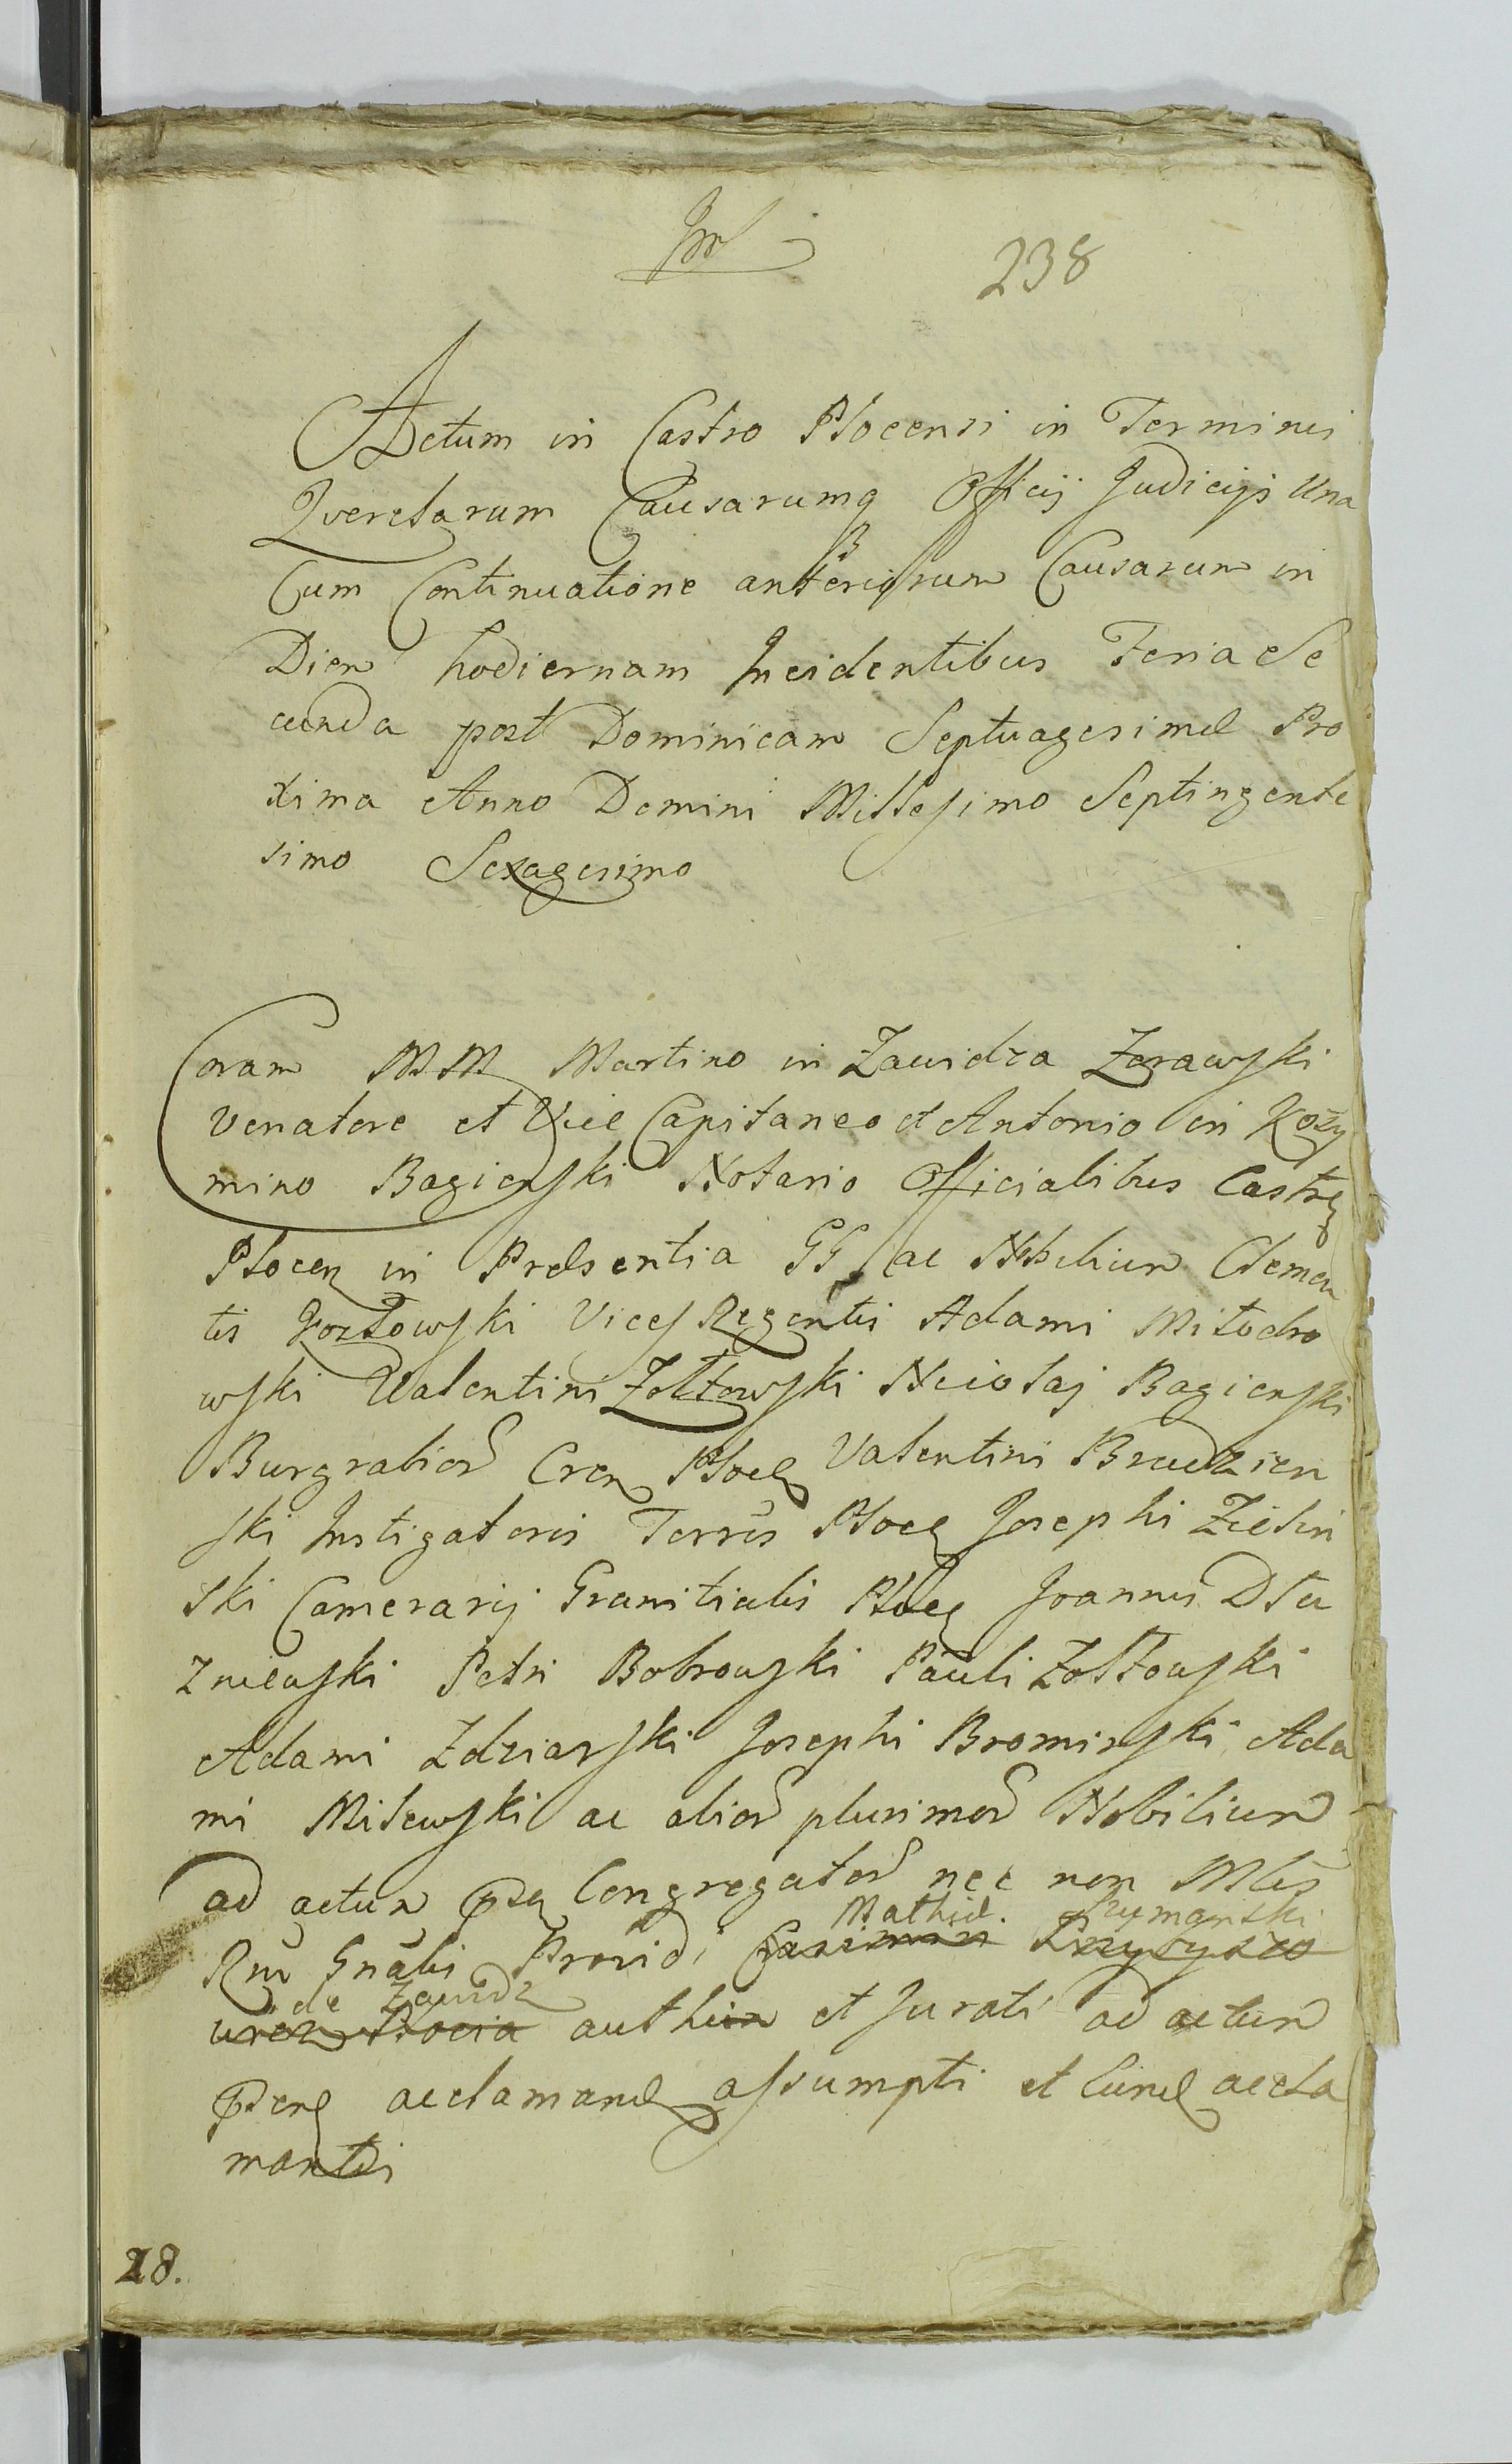 238
Actum in Castro Plocensi in Terminis
Qverelarum Causarumq Officij Judicijs Una
Cum Continuatione anteriorum Causarum in
Diem hodiernam Incidentibus Feria Se
cunda post Dominicam Septuagesimæ Pro
xima Anno Domini Millesimo Septingente
simo Sexagesimo
Coram MM Martino in Zawidza Zorawski
Venatore et Vice Capitaneo et Antonio in Kozy
mino Bagieński Notario Officialibus Castren
Plocen in Præsentia GG ac Nobilium Clemen
tis Kozłowski Vices Regentis Adami Miłodro
wski Valentini Żołtowski Nicolaj Bagieński
Burgrabior Cren Ploc Valentini Brudzien
ski Instigatoris Terris Ploc Josephi Zielin
ski Camerarij Granitialis Ploc Joannis Dłu
zniewski Petri Bobrowski Pauli Zołtowski
Adami Zdziarski Josephi Bromirski Ada
mi Milewski ac alior plurimor Nobilium
ad actum psn Congregator nec non Mlis
Mathiæ Szymanski
Rni Gnalis Providi
de Zawidz
authen et Jurati ad actum
psens acclamand assumpti et Cund accla
mantis
28.